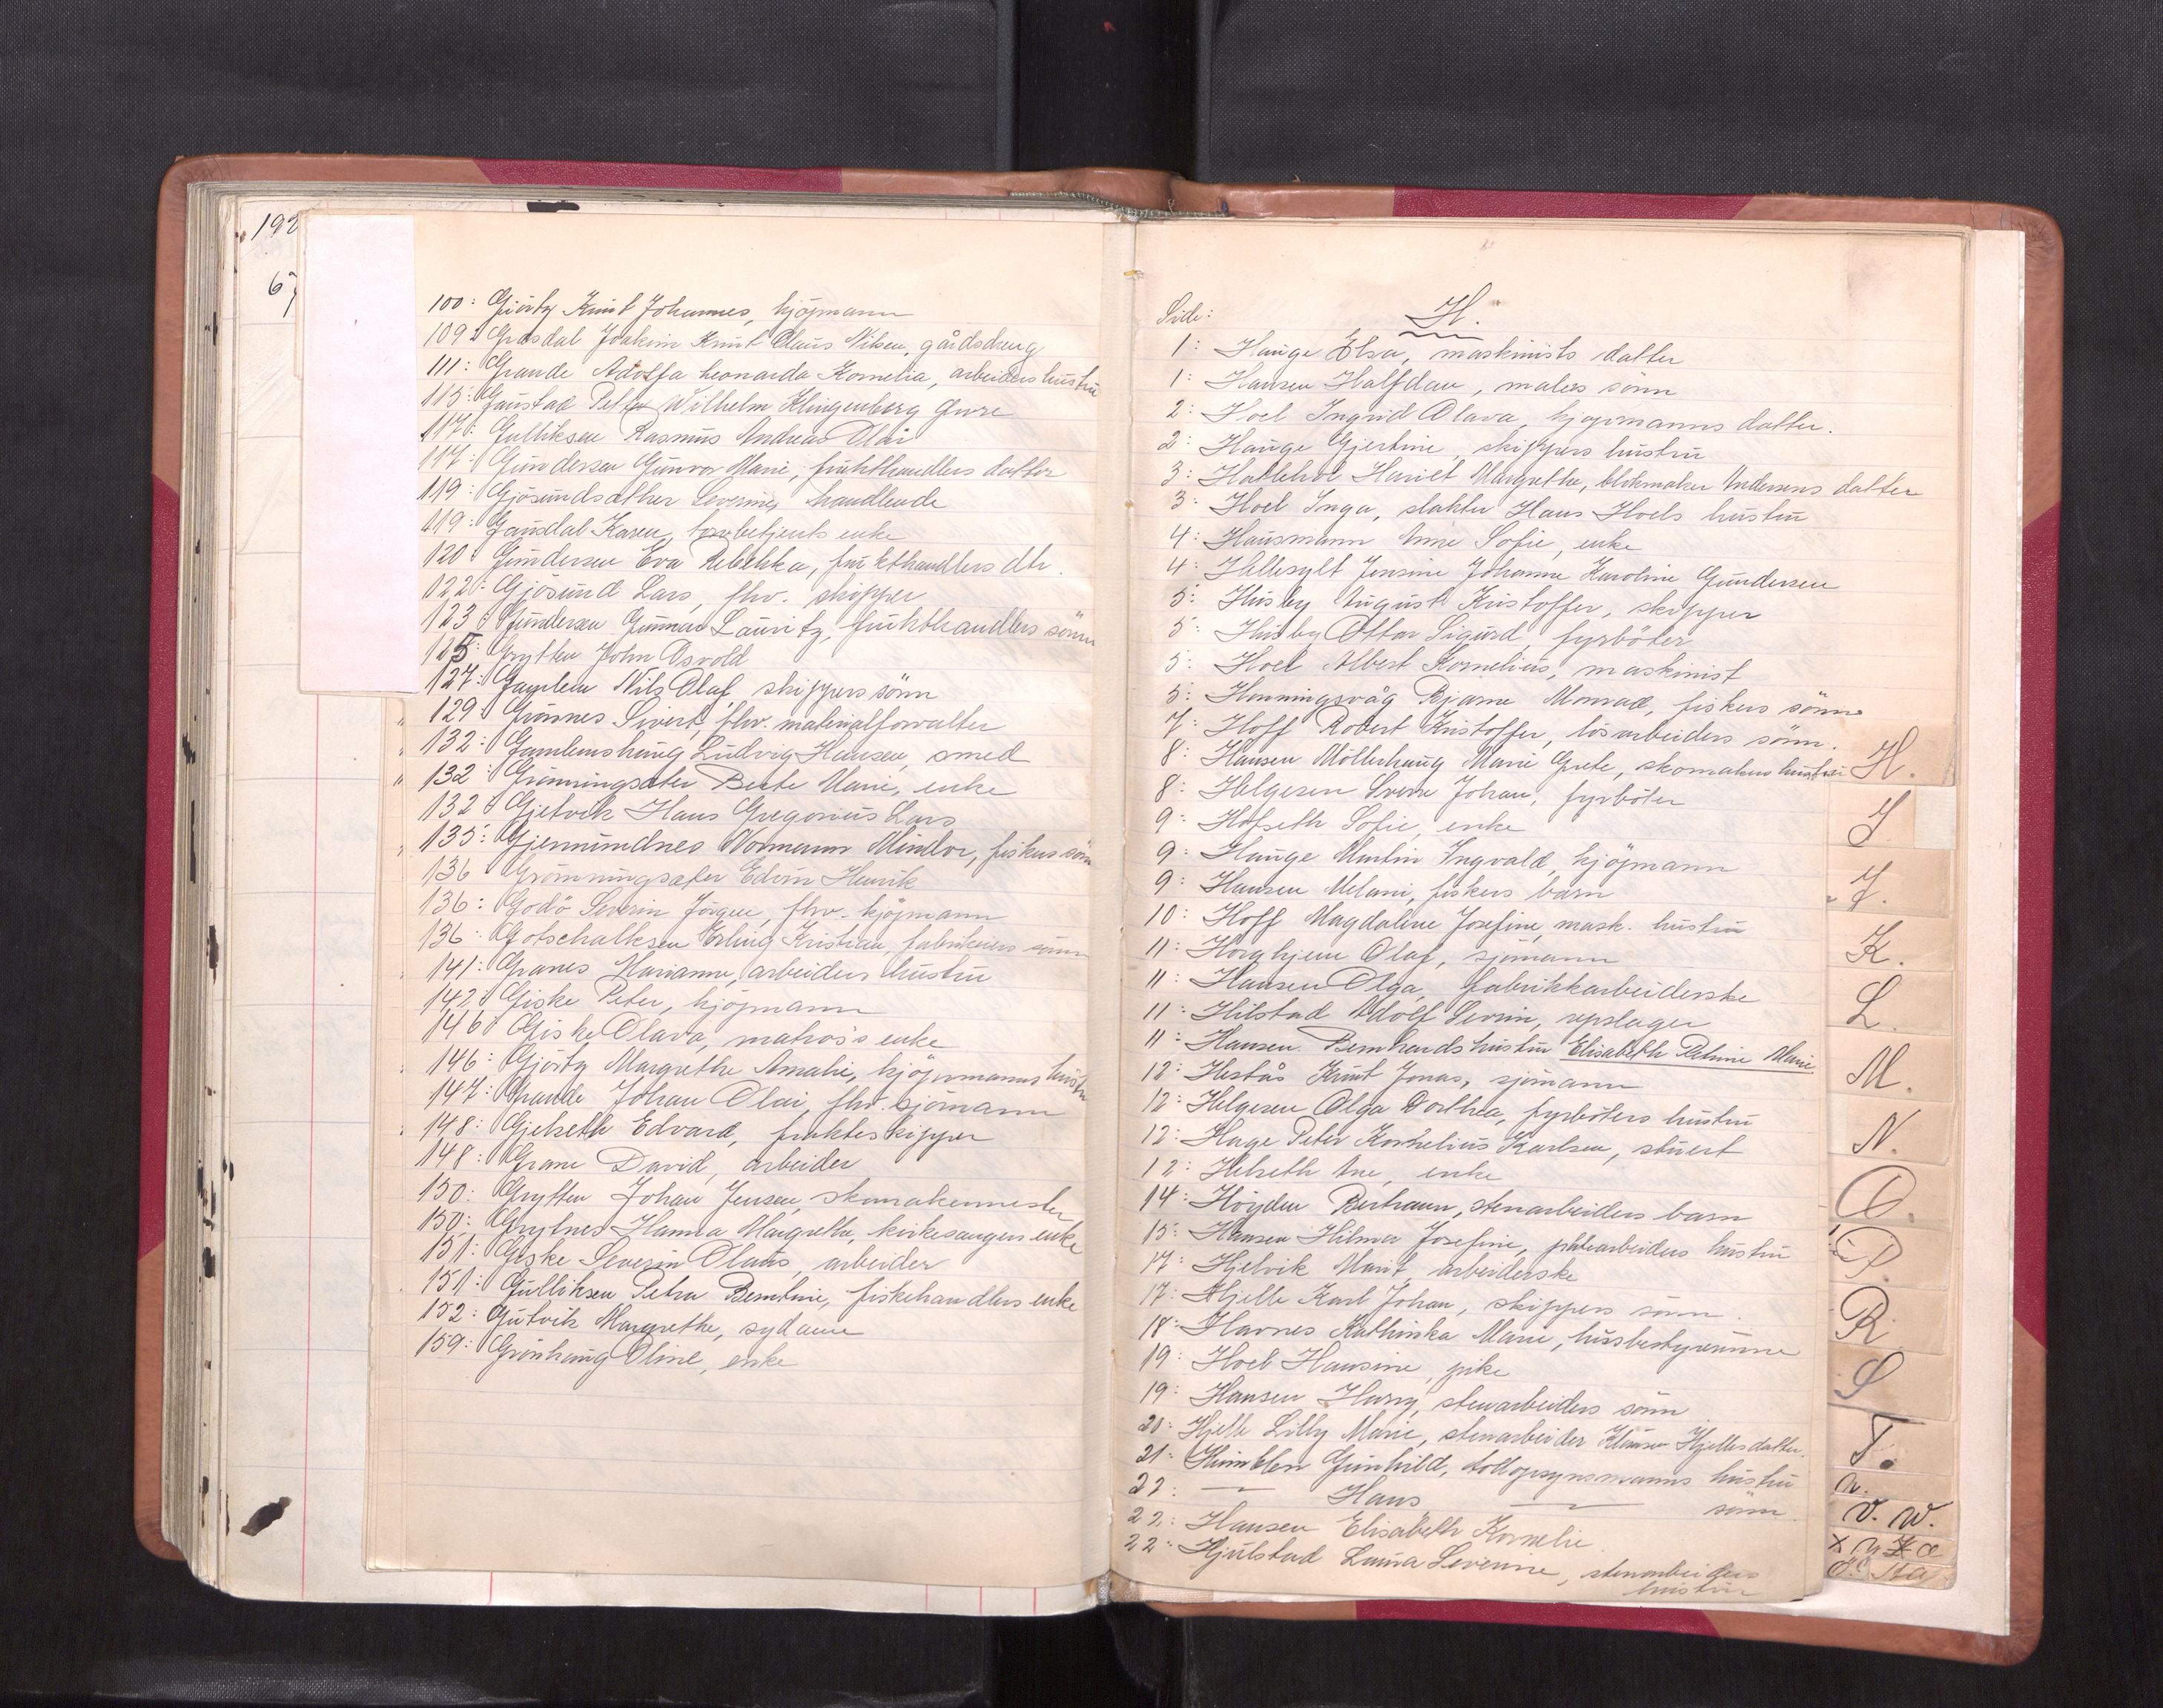 192
67
100: Gjörtz Knut Johannes, kjöpmann
109: Grasdal Joakim Knut Olaus Nilsen, gårdsdreng
111: Grande Adolfa Leonarda Kornelia, arbeiders hustru
115: Gaustad Petter Wilhelm Klingenberg Gure
117: Gulliksen Rasmus Andreas Olai
117: Gundersen Gunvor Marie, frukthandlers datter
119: Gjösundsæther Severine, handlende
119: Gausdal Karen, tollbetjents enke
120: Gundersen Eva Rebekka, frukthandlers dtr.
122: Gjösund Lars, fhv. skipper
123: Gundersen Gunnar Lauritz, frukthandlers sönn
125: Grytten John Osvold
127: Gamlem Nils Olaf, skippers sönn
129: Grönnes Sivert, fhv. materialforvalter
132: Gamlemshaug Ludvig Hansen, smed
132: Grönningsæter Berte Marie, enke
132: Gjetvik Hans Gregorius Lars
135: Gjermundnes Normann Mindor, fiskers sönn
136 Grönningsæter Edvin Henrik
136: Godö Severin Jörgen, fhv. kjöpmann
136: Gotschalksen Erling Kristian, fabrikeiers sönn
141: Granes Marianne, arbeiders hustru
142: Giske Peter, kjöpmann
146: Giske Olava, matros's enke
146: Gjörtz Margrethe Amalie, kjöpmanns hustru
147: Grande Johan Olai, fhv. sjömann
148: Gjelseth Edvard, frakteskipper
148: Grane David, arbeider
150: Grytten Johan Jensen, skomakermester
150: Grytnes Hanna Margrethe, kirkesangers enke
151: Giske Severin Olaus, arbeider
151: Gulliksen Petra Berntine, fiskehandlers enke
152: Gutvik Margrethe, sydame
159: Grönhaug Oline, enke
Side: H.
1: Hauge Elsa, maskinists datter
1: Hansen Halfdan, malers sönn
2: Hoel Ingrid Olava, kjøpmanns datter.
2: Hauge Gjertine, skippers hustru
3: Hatlehol Hariet Margrethe, blokmaker Andersens datter
3: Hoel Inga, slakter Hans Hoels hustru
4: Hausmann Anne Sofie, enke
4: Hellesylt Jensine Johanne Karoline Gundersen
5: Husby August Kristoffer, skipper
5: Husby Ottar Sigurd, fyrböter
5: Hoel Albert Kornelius, maskinist
5: Honningsvåg Bjarne Monrad, fiskers sönn
7: Hoff Robert Kristoffer, lösarbeiders sönn.
8: Hansen Möllerhaug Marie Grete, skomakers hustru
8: Helgesen Sverre Johan, fyrböter
9: Hofseth Sofie, enke
9: Hauge Martin Ingvald, kjöpmann
9: Hansen Melani, fiskers barn
10: Hoff Magdalene Josefine, mask. hustru
11: Horghjem Olaf, sjömann
11: Hansen Olga, fabrikkarbeiderske
11: Hilstad Adolf Severin, repslager
11: Hansen Bernhards hustru Elisabeth Petrine Marie
12: Hestås Knut Jonas, sjömann
12: Helgesen Olga Dorthea, fyrböters hustru
12: Hage Peter Kornelius Karlsen, stuert
12: Helseth Ane, enke
14: Höyden Bertram, stenarbeiders barn
15: Hansen Hilma Josefine, platearbeiders hustru
17: Hjelvik Marit, arbeiderske
17: Hjelle Karl Johan, skippers sönn.
18: Havnes Kathinka Marie, husbestyrerinne
19: Hoel Hansine, pike
19: Hansen Harry, stenarbeiders sönn
20: Hjelle Lilly Marie, stenarbeider Klaus Hjelles datter.
21: Humblen Gunhild, tollopsynsmanns hustru
22: — Hans — sönn.
22: Hansen Elisabeth Kornelie.
22: Hjulstad Laura Severine, stenarbeiders
hustru
H.
I
J.
K.
L.
M.
N.
O.
P.
R
S
T.
U.
V. W.
X Y Z Æ
Ö. Aa